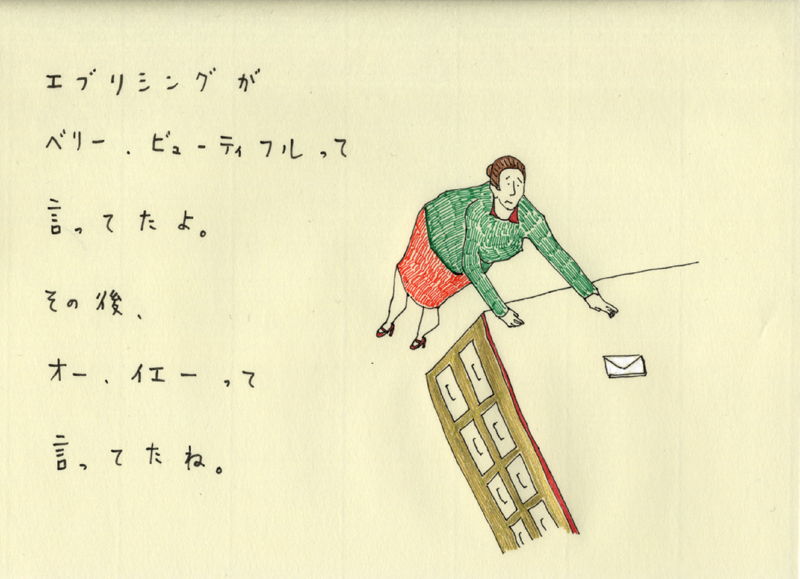 エブリシングが
ベリー、ビューティフルって
言ってたよ。
その後、
オー、イエーって
言ってたね。